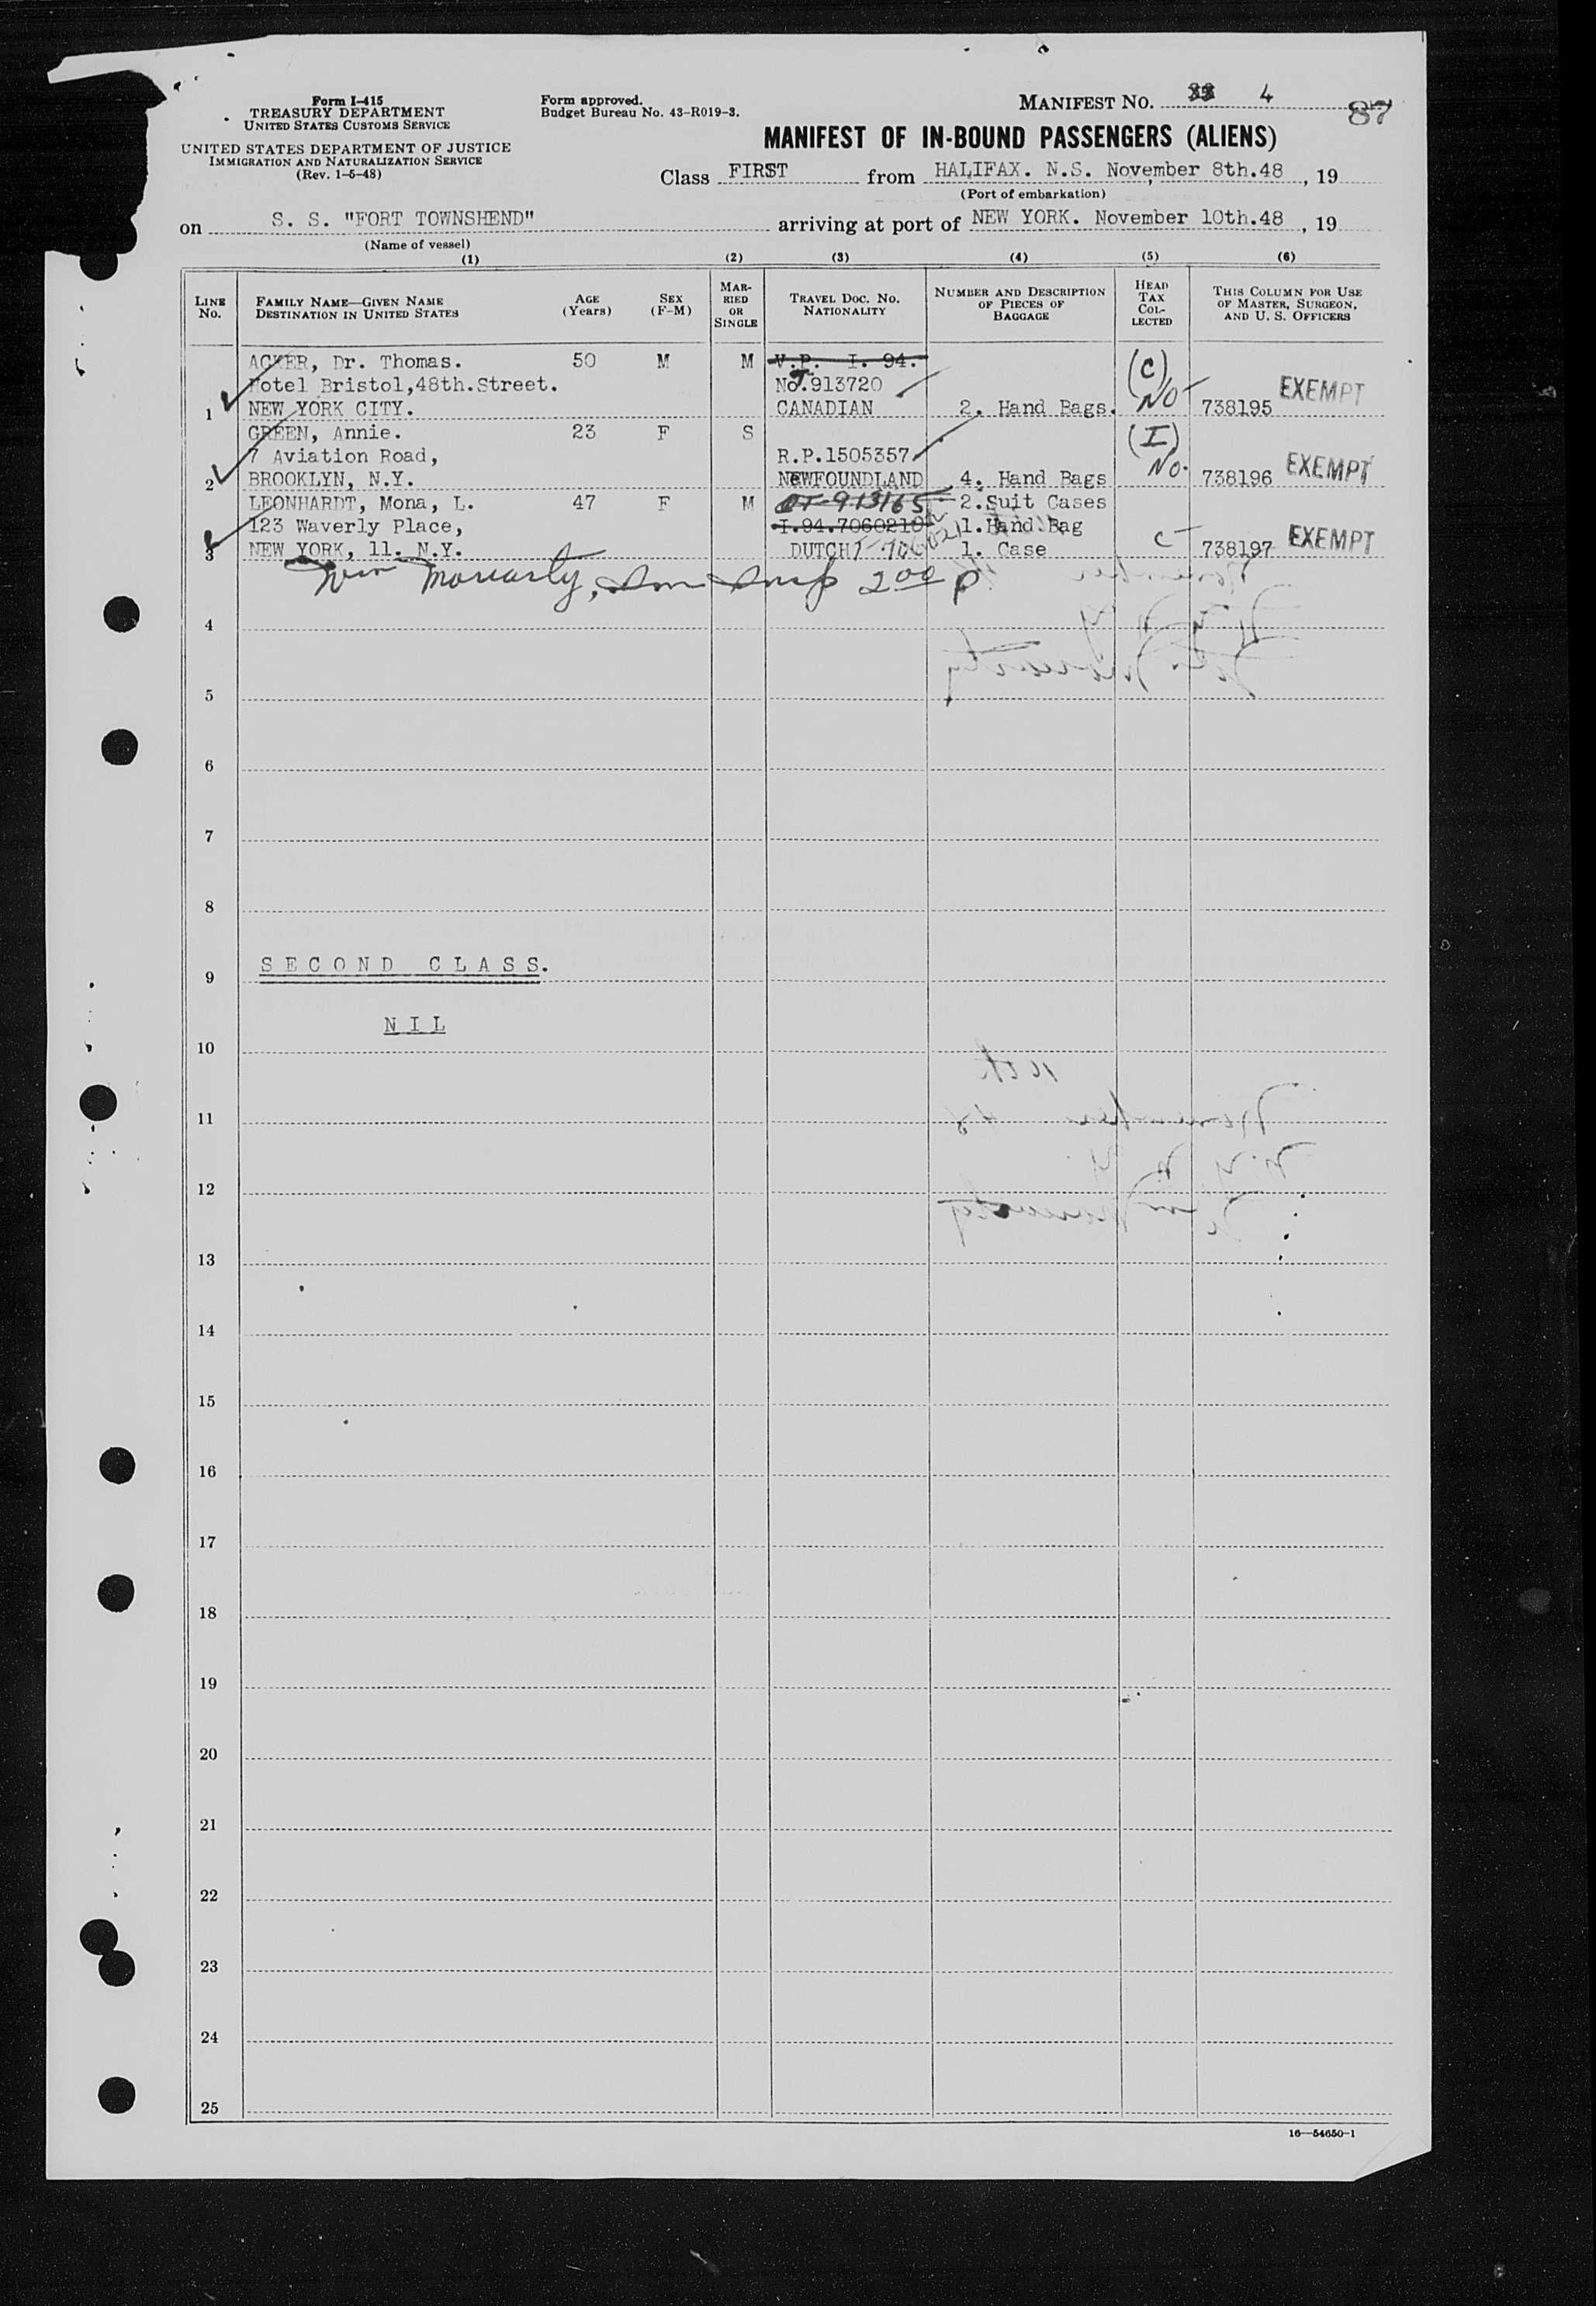 Form I-415
TREASURY DEPARTMENT
UNITED STATES CUSTOMS SERVICE
UNITED STATES DEPARTMENT OF JUSTICE
IMMIGRATION AND NATURALIZATION SERVICE
(Rev. 1-5-48)
Form approved.
Budget Bureau No. 43-R019-3.
MANIFEST NO. 4
87
MANIFEST OF IN-BOUND PASSENGERS (ALIENS)
Class FIRST from HALIFAX. N.S. November 8th.48, 19
(Port of embarkation)
on S. S. "FORT TOWNSHEND" arriving at port of NEW YORK. November 10th.48, 19
(Name of vessel)
(1) (2) (3) (4) (5) (6)
LINE NO. FAMILY NAME—GIVEN NAME DESTINATION IN UNITED STATES AGE (Years) SEX (F-M) MARRIED OR SINGLE TRAVEL DOC. NO. NATIONALITY NUMBER AND DESCRIPTION OF PIECES OF BAGGAGE HEAD TAX COLLECTED THIS COLUMN FOR USE OF MASTER, SURGEON, AND U. S. OFFICERS
ACKER, Dr. Thomas. 50 M M V.P. I. 94. (C)
Hotel Bristol,48th.Street. No.913720 No EXEMPT
1 NEW YORK CITY. CANADIAN 2. Hand Bags. 738195
GREEN, Annie. 23 F S (I)
7 Aviation Road, R.P.1505357 No. EXEMPT
2 BROOKLYN, N.Y. NEWFOUNDLAND 4. Hand Bags 738196
LEONHARDT, Mona, L. 47 F M 913165 2.Suit Cases
123 Waverly Place, I.94.7060210 1.Hand Bag
3 NEW YORK, 11. N.Y. DUTCH 1. Case C 738197 EXEMPT
Wm Moriarty, Imm Insp 2 00 P
4
5
6
7
8
SECOND CLASS.
9
NIL
10
11
12
13
14
15
16
17
18
19
20
21
22
23
24
25
16—54650-1